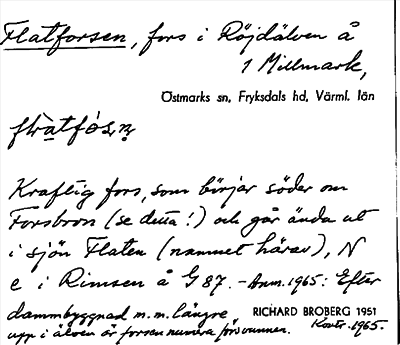 Flatforsen, fors i Röjdälven å
1 Millmark,
Östmarks sn, Fryksdals hd, Värml. län
Kraftig fors, som börjar söder om
Forsbron (se detta!) och går ända ut
i sjön Flaten (namnet härav), N
e i Rimsen å G 87. – Anm. 1965: Efter
dammbyggnad m.m. längre
RICHARD BROBERG 1951
upp i älven är forsen numera försvunnen. Kontr. 1965.